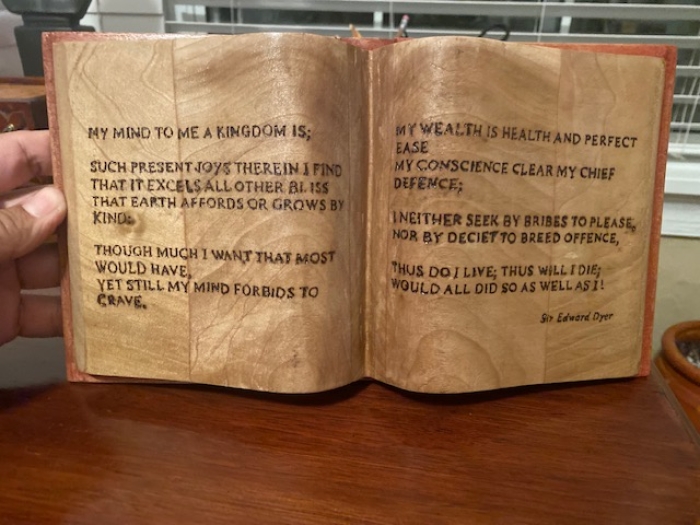 MY MIND TO ME A KINGDOM IS;
SUCH PRESENT JOYS THEREIN I FIND
THAT IT EXCELS ALL OTHER BLISS
THAT EARTH AFFORDS OR GROWS BY
KIND:
THOUGH MUCH I WANT THAT MOST
WOULD HAVE,
YET STILL MY MIND FORBIDS TO
CRAVE.
MY WEALTH IS HEALTH AND PERFECT
EASE
MY CONSCIENCE CLEAR MY CHIEF
DEFENCE;
I NEITHER SEEK BY BRIBES TO PLEASE,
NOR BY DECIET TO BREED OFFENCE,
THUS DO I LIVE; THUS WILL I DIE;
WOULD ALL DID SO AS WELL AS I!
Sir Edward Dyer